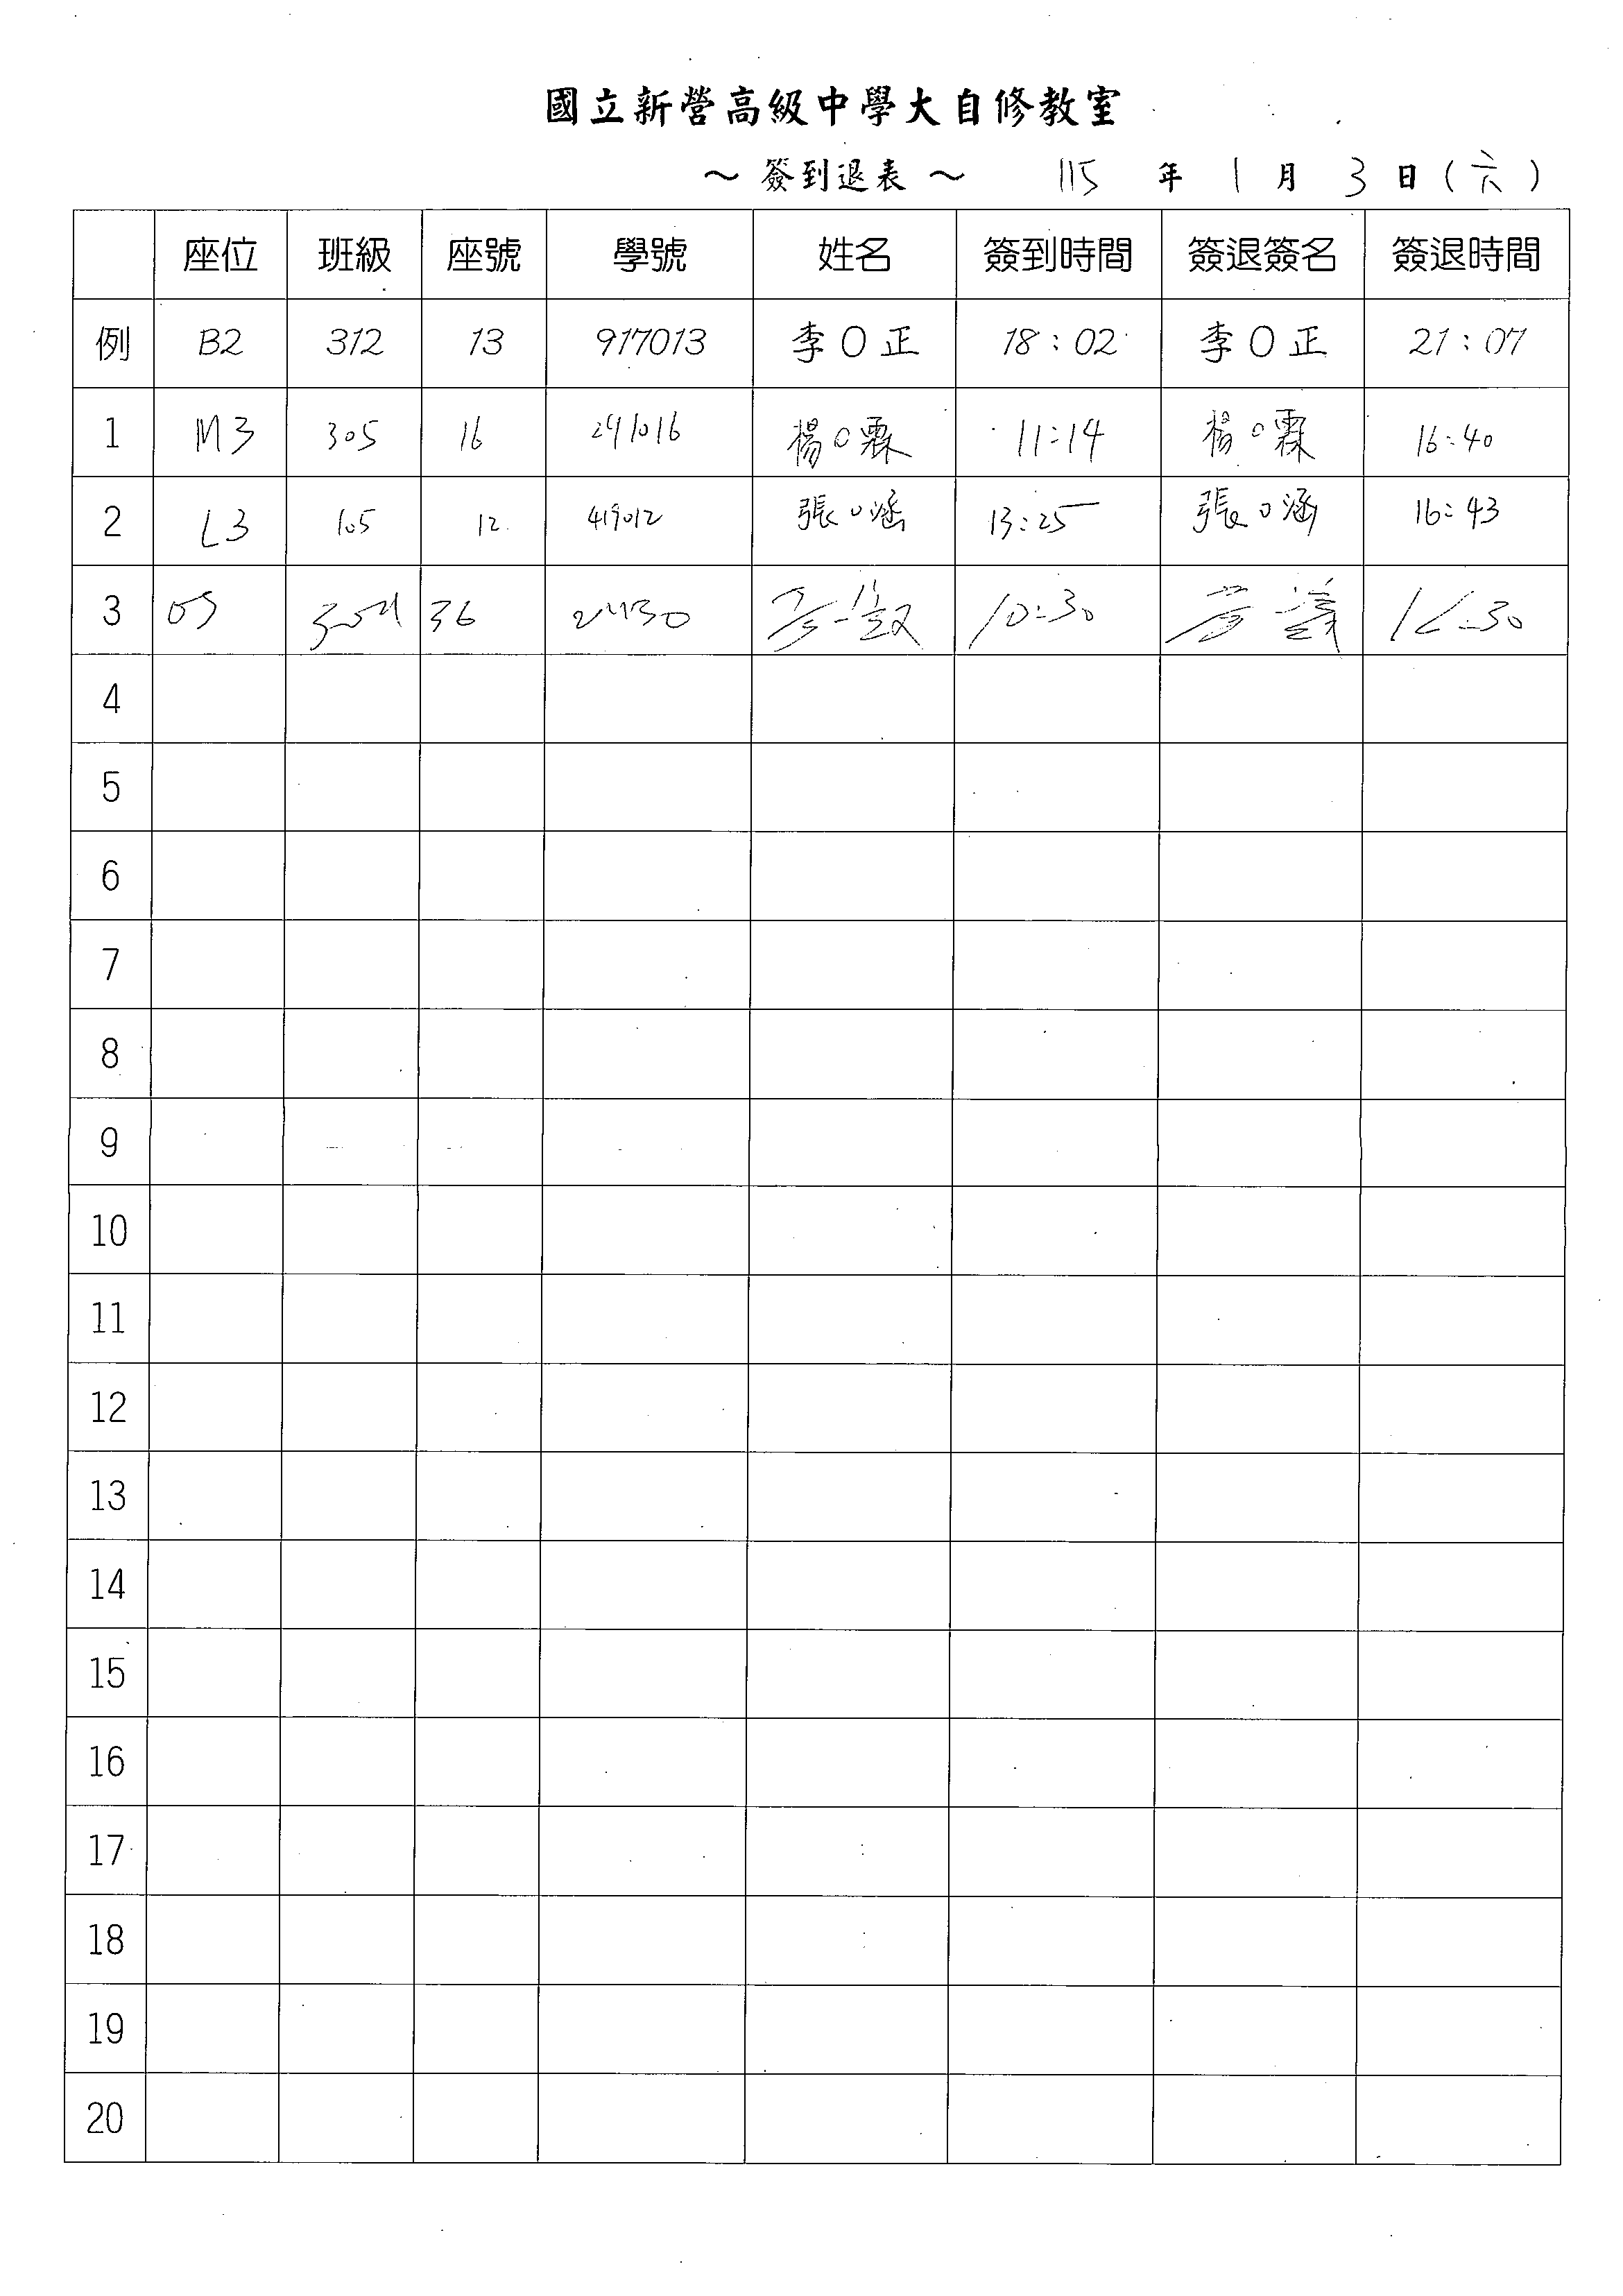 國立新營高級中學大自修教室
～ 簽到退表 ～ 115 年 1 月 3 日 ( 六 )
座位 班級 座號 學號 姓名 簽到時間 簽退簽名 簽退時間
例 B2 312 13 917013 李 O 正 18 : 02 李 O 正 21 : 07
1 M3 305 16 241016 楊O霖 11:14 楊O霖 16:40
2 L3 105 12 419012 張O涵 13:25 張O涵 16:43
3 36 10:30 16:30
4
5
6
7
8
9
10
11
12
13
14
15
16
17
18
19
20